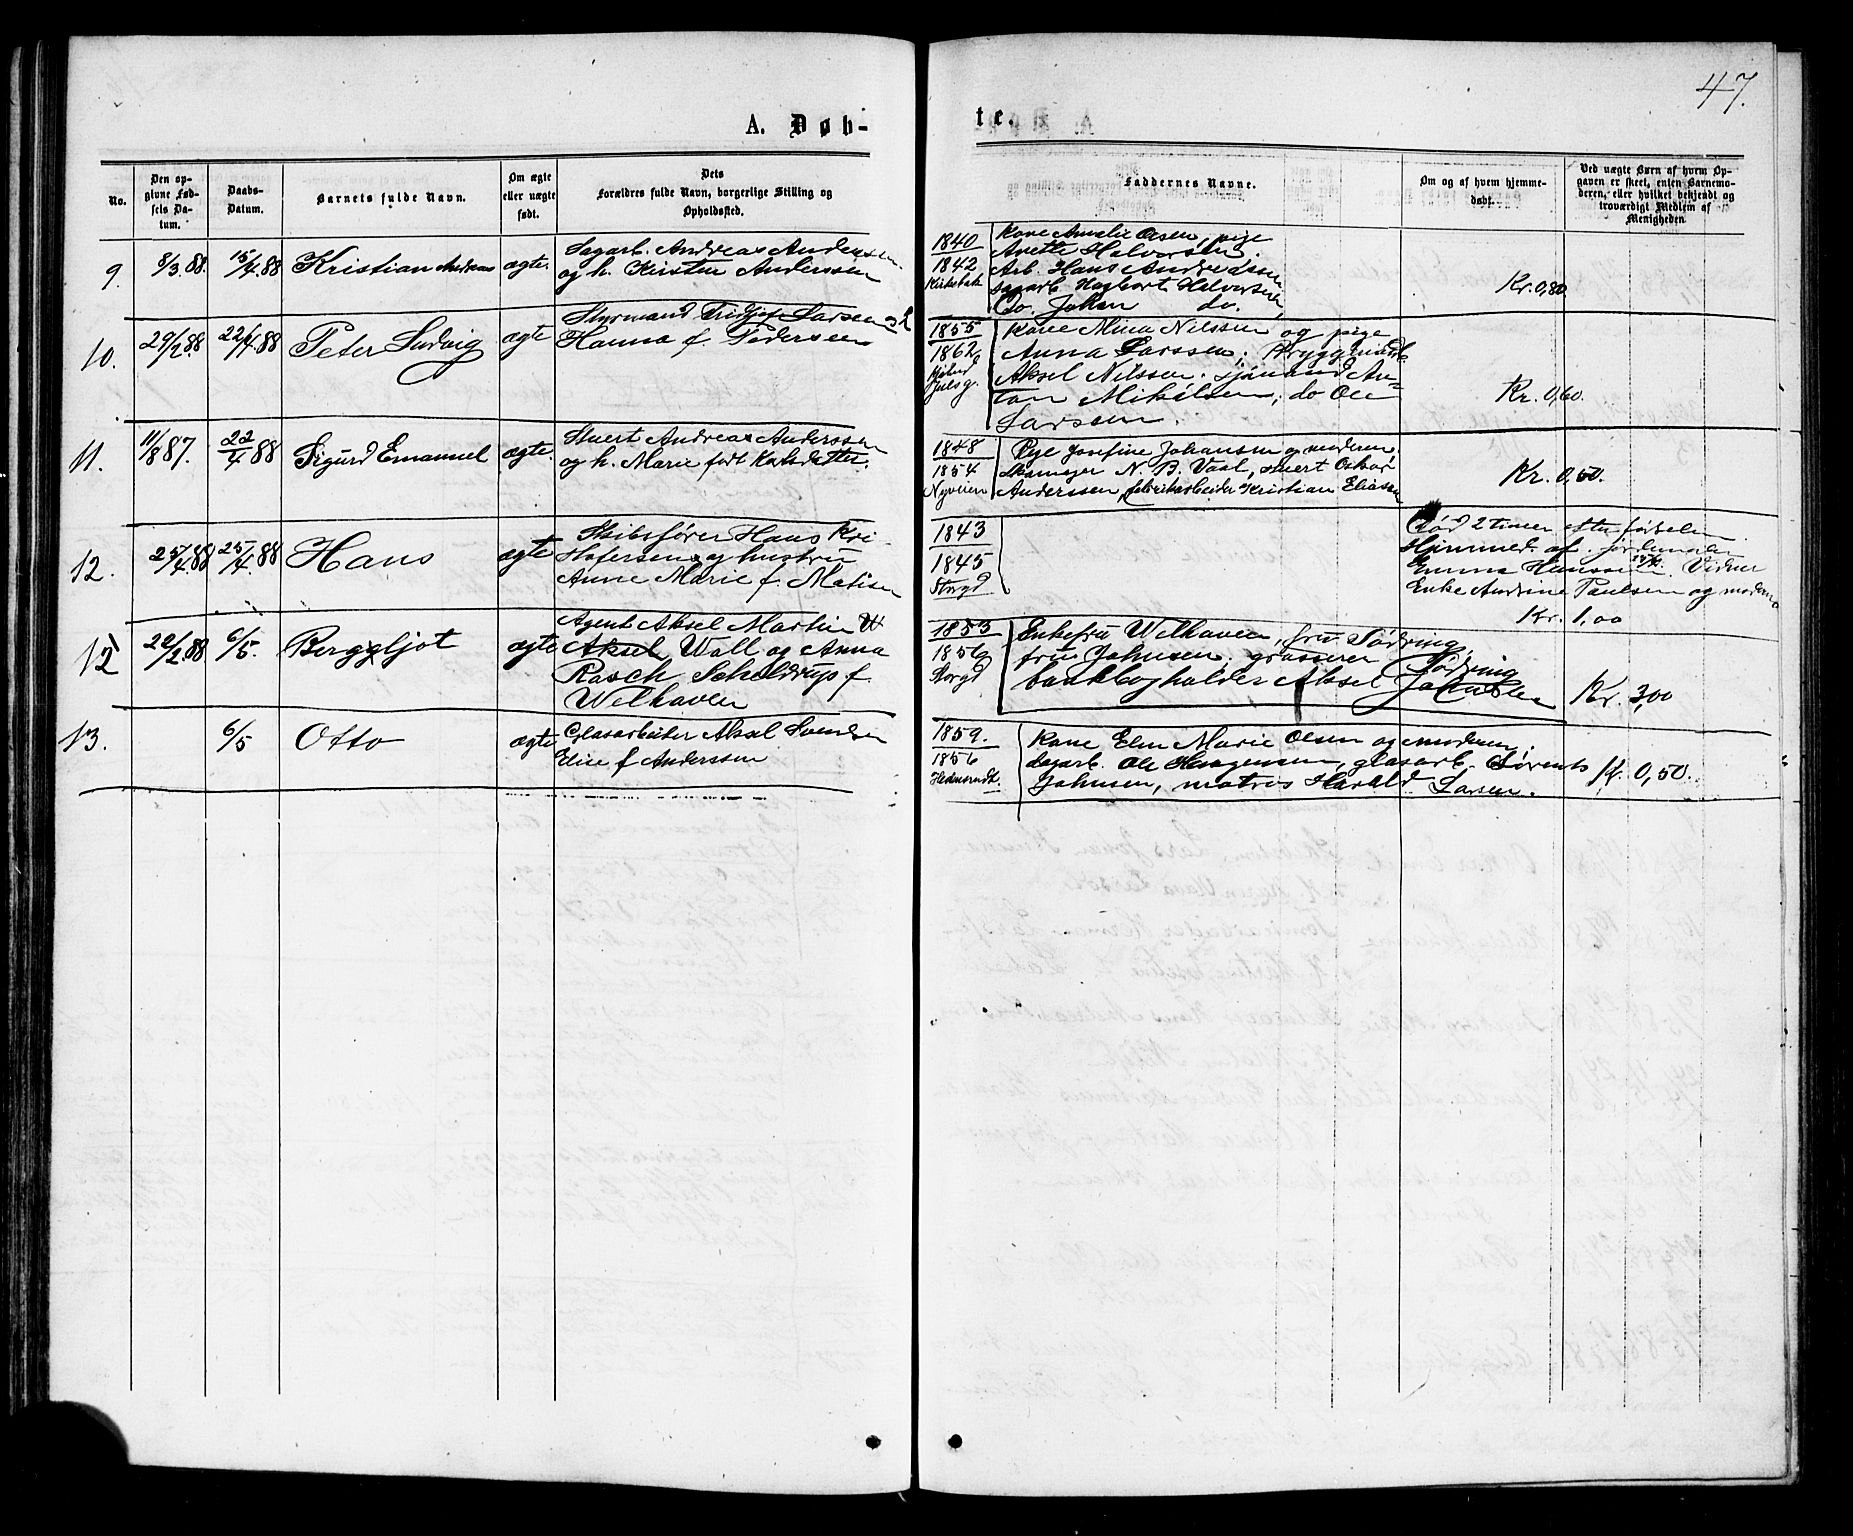 47.
A. Døb-
te.
No.
Den op-
givne Fød-
sels Da-
tum.
Daabs-
Datum.
Barnets fulde Navn.
Om ægte
eller uægte
født.
Dets
Forældres fulde Navn, borgerlige Stilling og
Opholdssted.
Faddernes Navne.
Om og af hvem hjemme-
døbt.
Ved uægte Børn af hvem Op-
gaven er skeet, enten Barnemo-
deren, eller hvilket bekjendt og
troværdigt Medlem af
Menigheden.
9.
8/3.88.
15/4.88
Kristian Andreas
ægte.
Sagarb. Andreas Anderssen
og h. Kirstin Anderssen
1840
1842
Kirkebak
Kone Amalie Olsen, pige
Anette Halvorsen.
Arb. Hans Andreassen
sagarb. Hagbart Halvorsen,
Do. Johan do.
Kr. 0,80
10.
29/2 88
22/4.88
Peter Ludvig
ægte
Styrmand Fridtjof Larsen og h
Hanna f. Pedersen
1855
1862
Kone Mina Nilssen og pige
Anna Larssen; Bryggeriarb.
Aksel Nilssen, sjømand An-
ton Mikelsen, do Ole
Larssen.
Kr. 0,60.
11.
11/8 87.
22/4 88
Sigurd Emanuel
ægte.
Stuert Andreas Anderssen
og h. Marie født Karlsdatter.
1848
1854
Nyveien
Pige Josefine Johansen og moderen.
Skomager N. B. Vaal, stuert Oskar
Anderssen, fabrikarbeider Kristian Eliassen
Kr. 0,50.
12.
25/4.88
25/4.88
Hans
ægte
Skibsfører Hans Kri-
stofersen og hustru
Anne Marie f. Matisen
1843
1845
Storgd
Død 2 timer efter fødselen.
Hjemmed. af jordemoder
Emma Hanssen. Vidner
Enke Andrine Paulsen og moderen
Kr. 1,00
12
22/2.88
6/5.
Berggljot
ægte
Agent Aksel Martin W
Aksel Wall og Anna
Rasch Scheldrup f.
Welhaven
1853
1856
Storgd
Enkefru Welhaven, fru Sødring,
frue Johnsen, grosserer Sødring
bankbogholder Aksel Johnsen
Kr. 3,00
13.
6/5
Otto
ægte
Glasarbeider Aksel Svendsen
Elise f Anderssen
1859.
1856
Kone Elen Marie Olsen og moderen,
sagarb. Ole Haagensen, glasarb. Sørents
Johnsen, matros Harald Larsen.
Kr. 0,50.